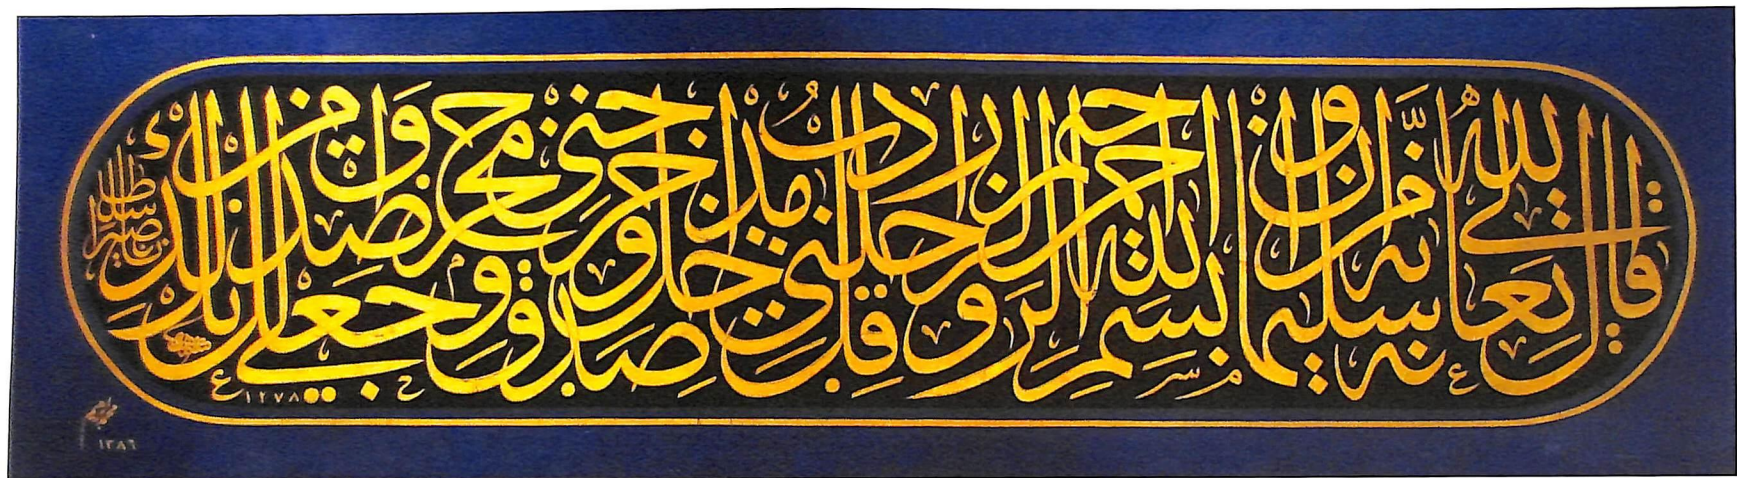 قال الله تعالى إنه من سليمان وإنه بسم الله الرحمن الرحيم وقل رب أدخلني مدخل صدق وأخرجني مخرج صدق واجعل لي من لدنك سلطانا نصيرا
١٢٧٨
١٣٨٦